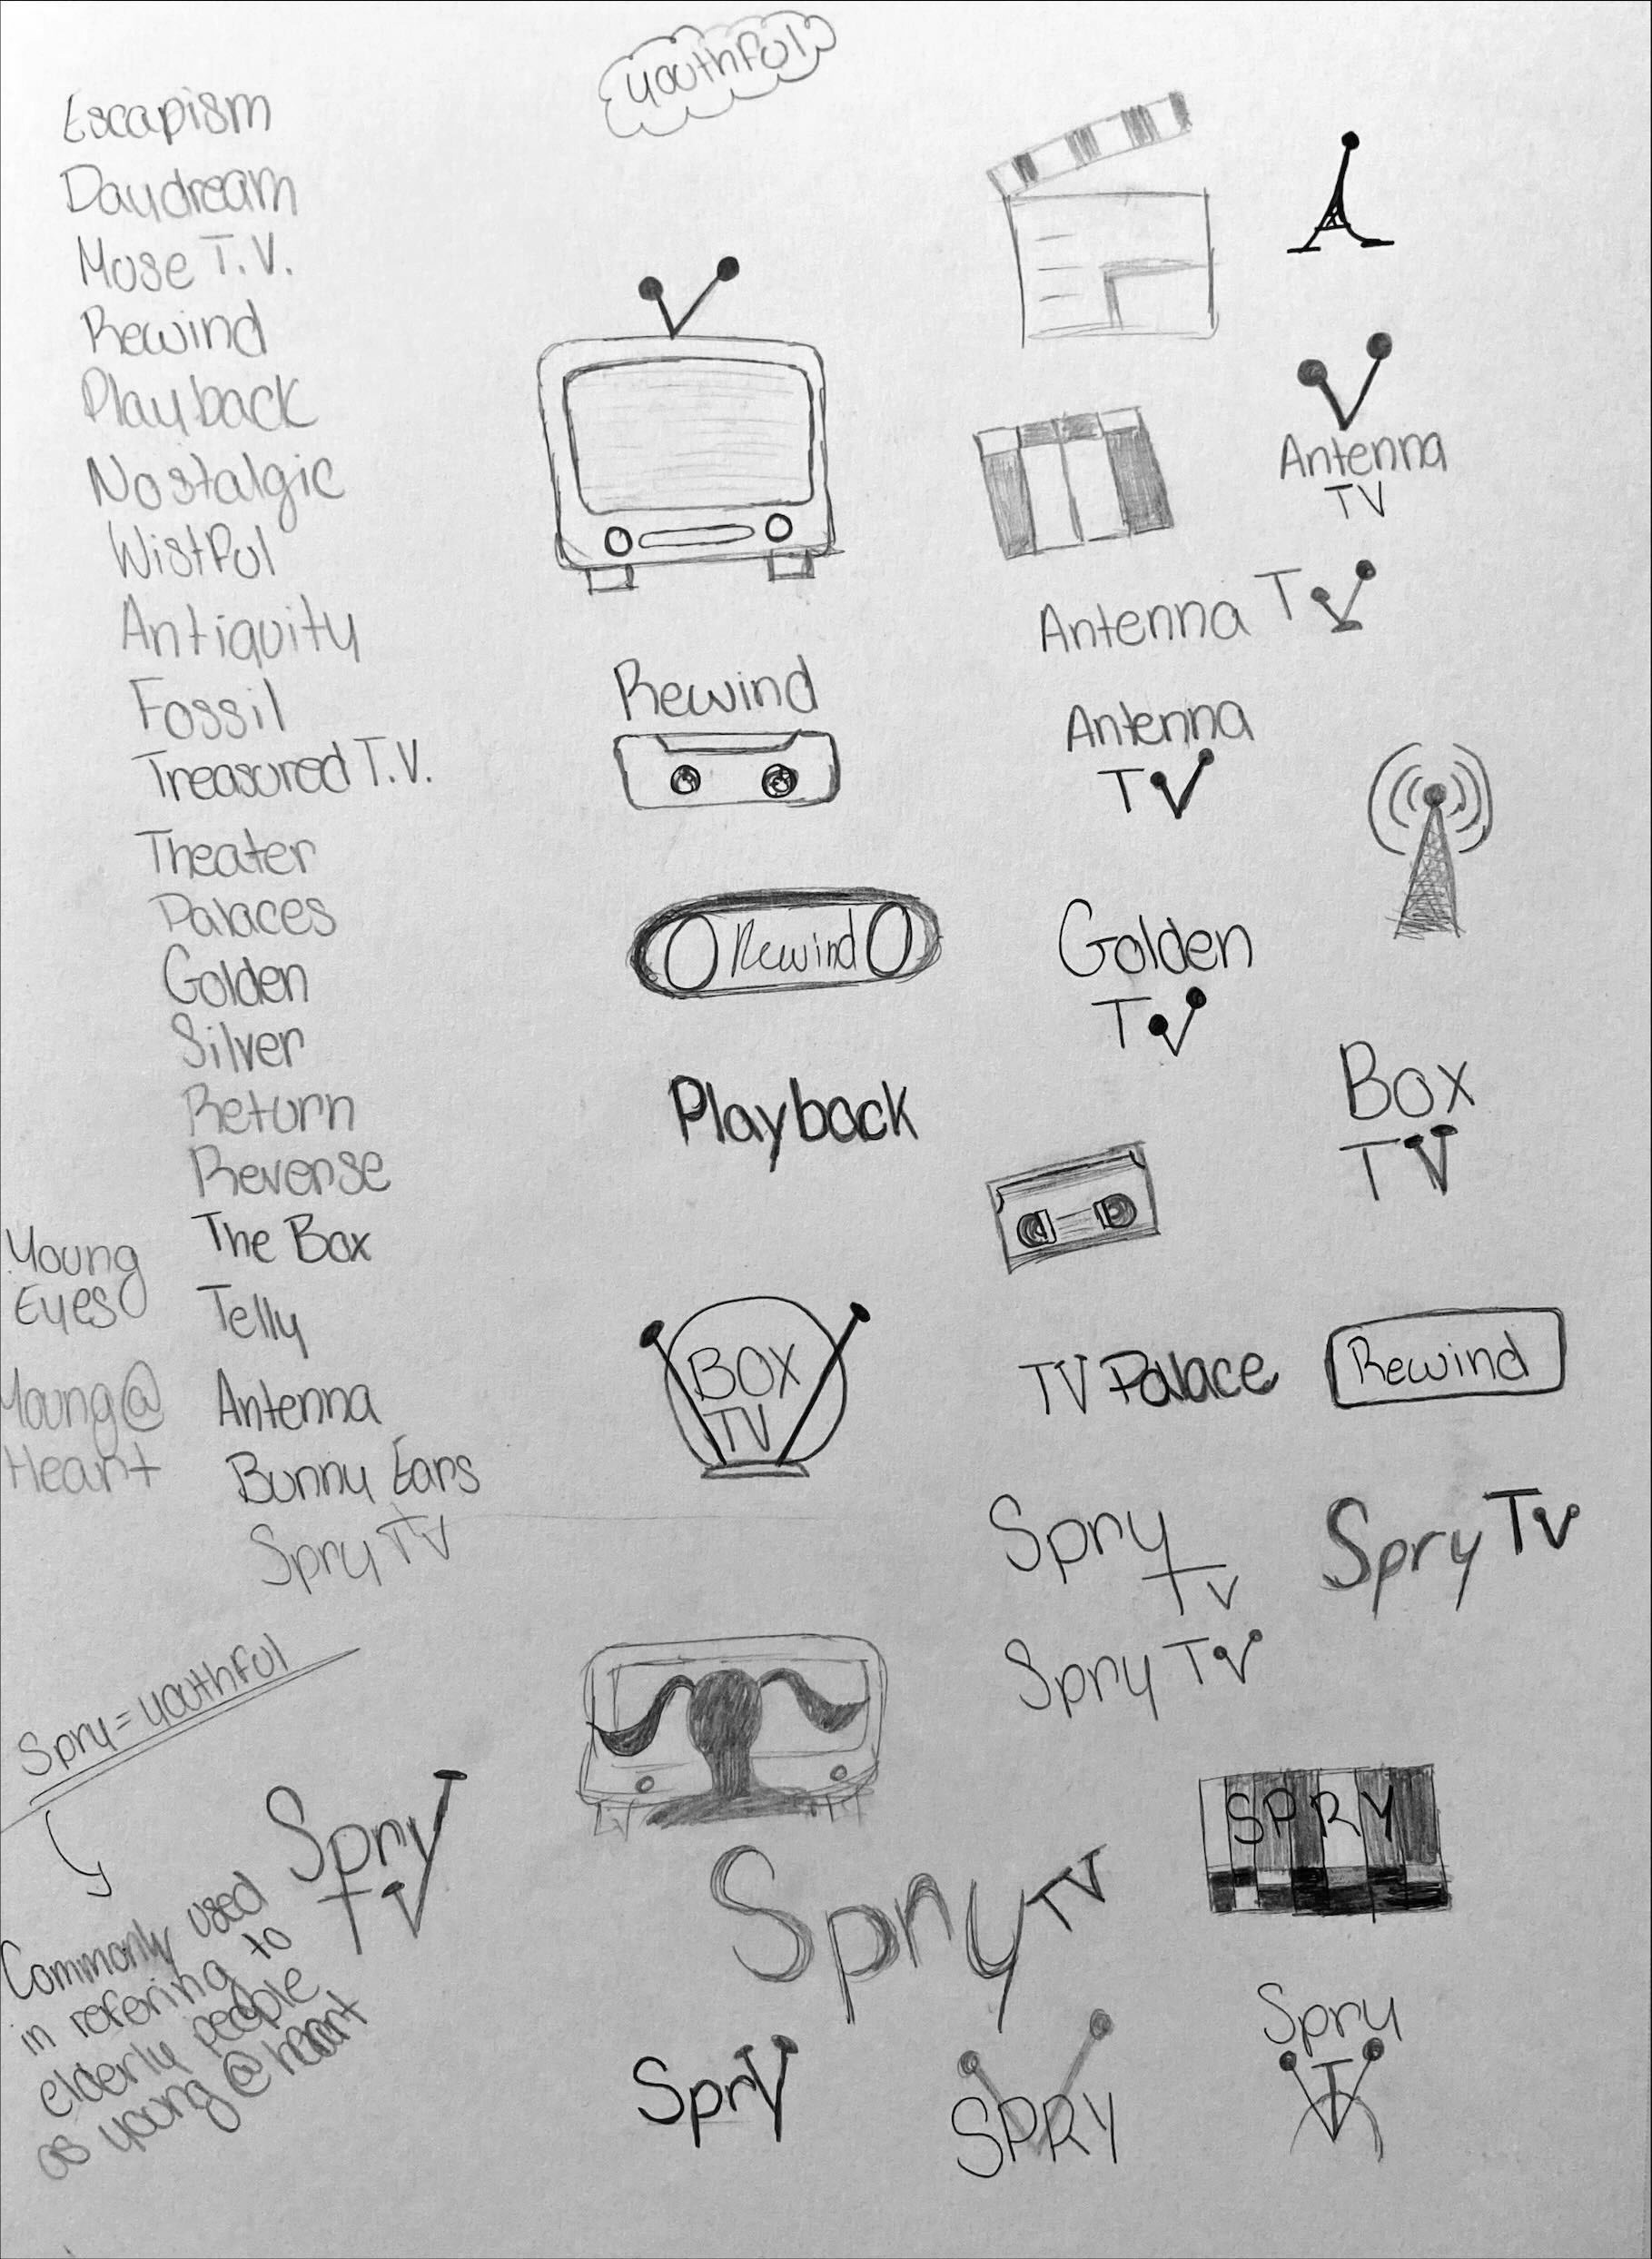 youthful
Escapism
Daydream
Muse T.V.
Rewind
Playback
Nostalgic
Wistful
Antiquity
Fossil
Treasured T.V.
Theater
Palaces
Golden
Silver
Return
Reverse
The Box
Telly
Antenna
Bunny Ears
Spry TV
Young
Eyes
Young@
Heart
Spry = youthful
Commonly used
in refering to
elderly people
as young @ heart
Spry
TV
Rewind
Rewind
Playback
BOX
TV
Antenna
TV
Antenna TV
Antenna
TV
Golden
TV
Box
TV
TV Palace
Rewind
Spry
TV
Spry TV
Spry TV
SPRY
Spry TV
Spry
SPRY
Spry
TV